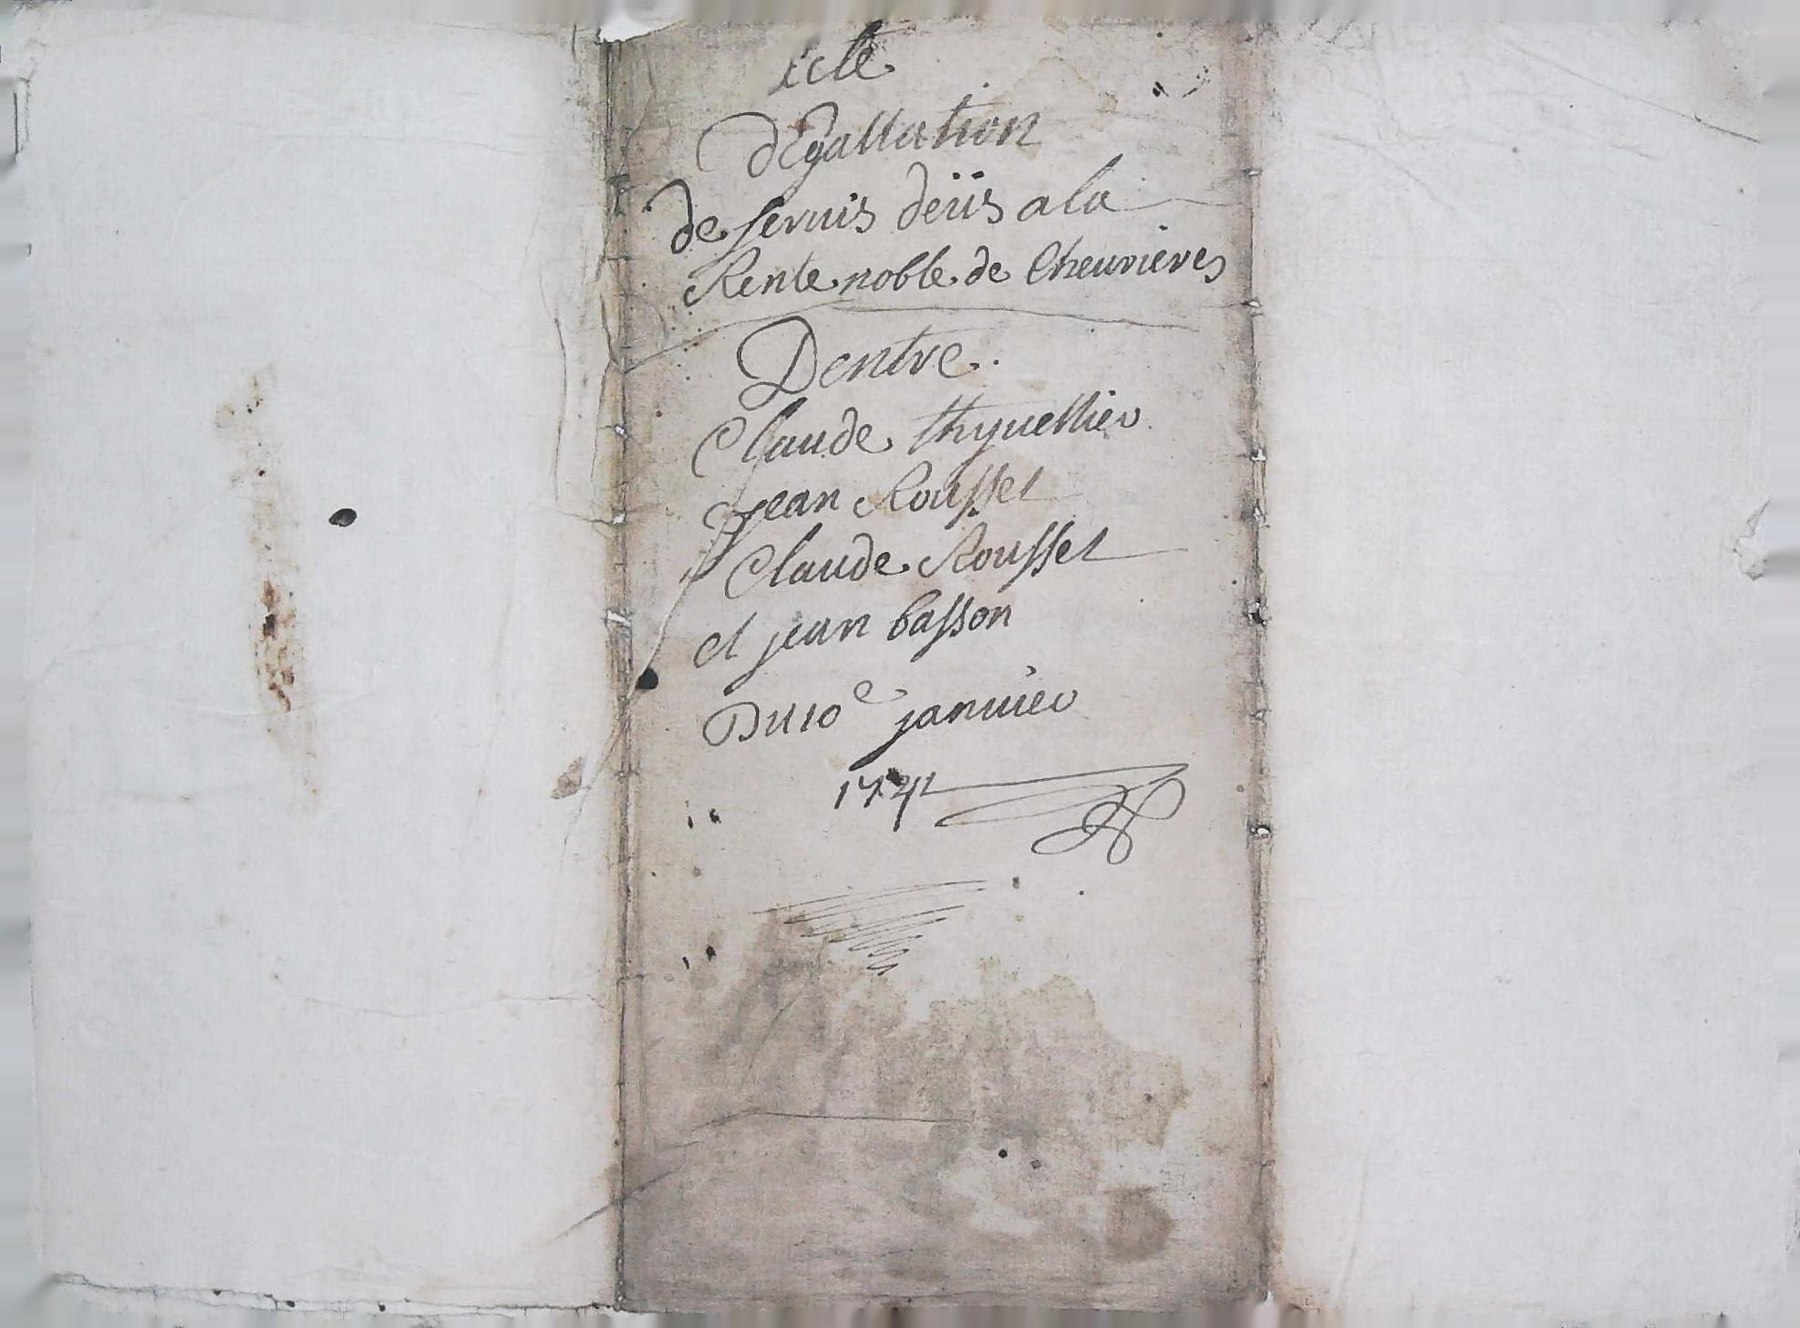 acte
dEgallation
de servis deüs a la
Rente noble de Cheurieres
Dentre
Claude thyuellier
jean Rousset
Claude Rousset
et jean basson
Du 10e januier